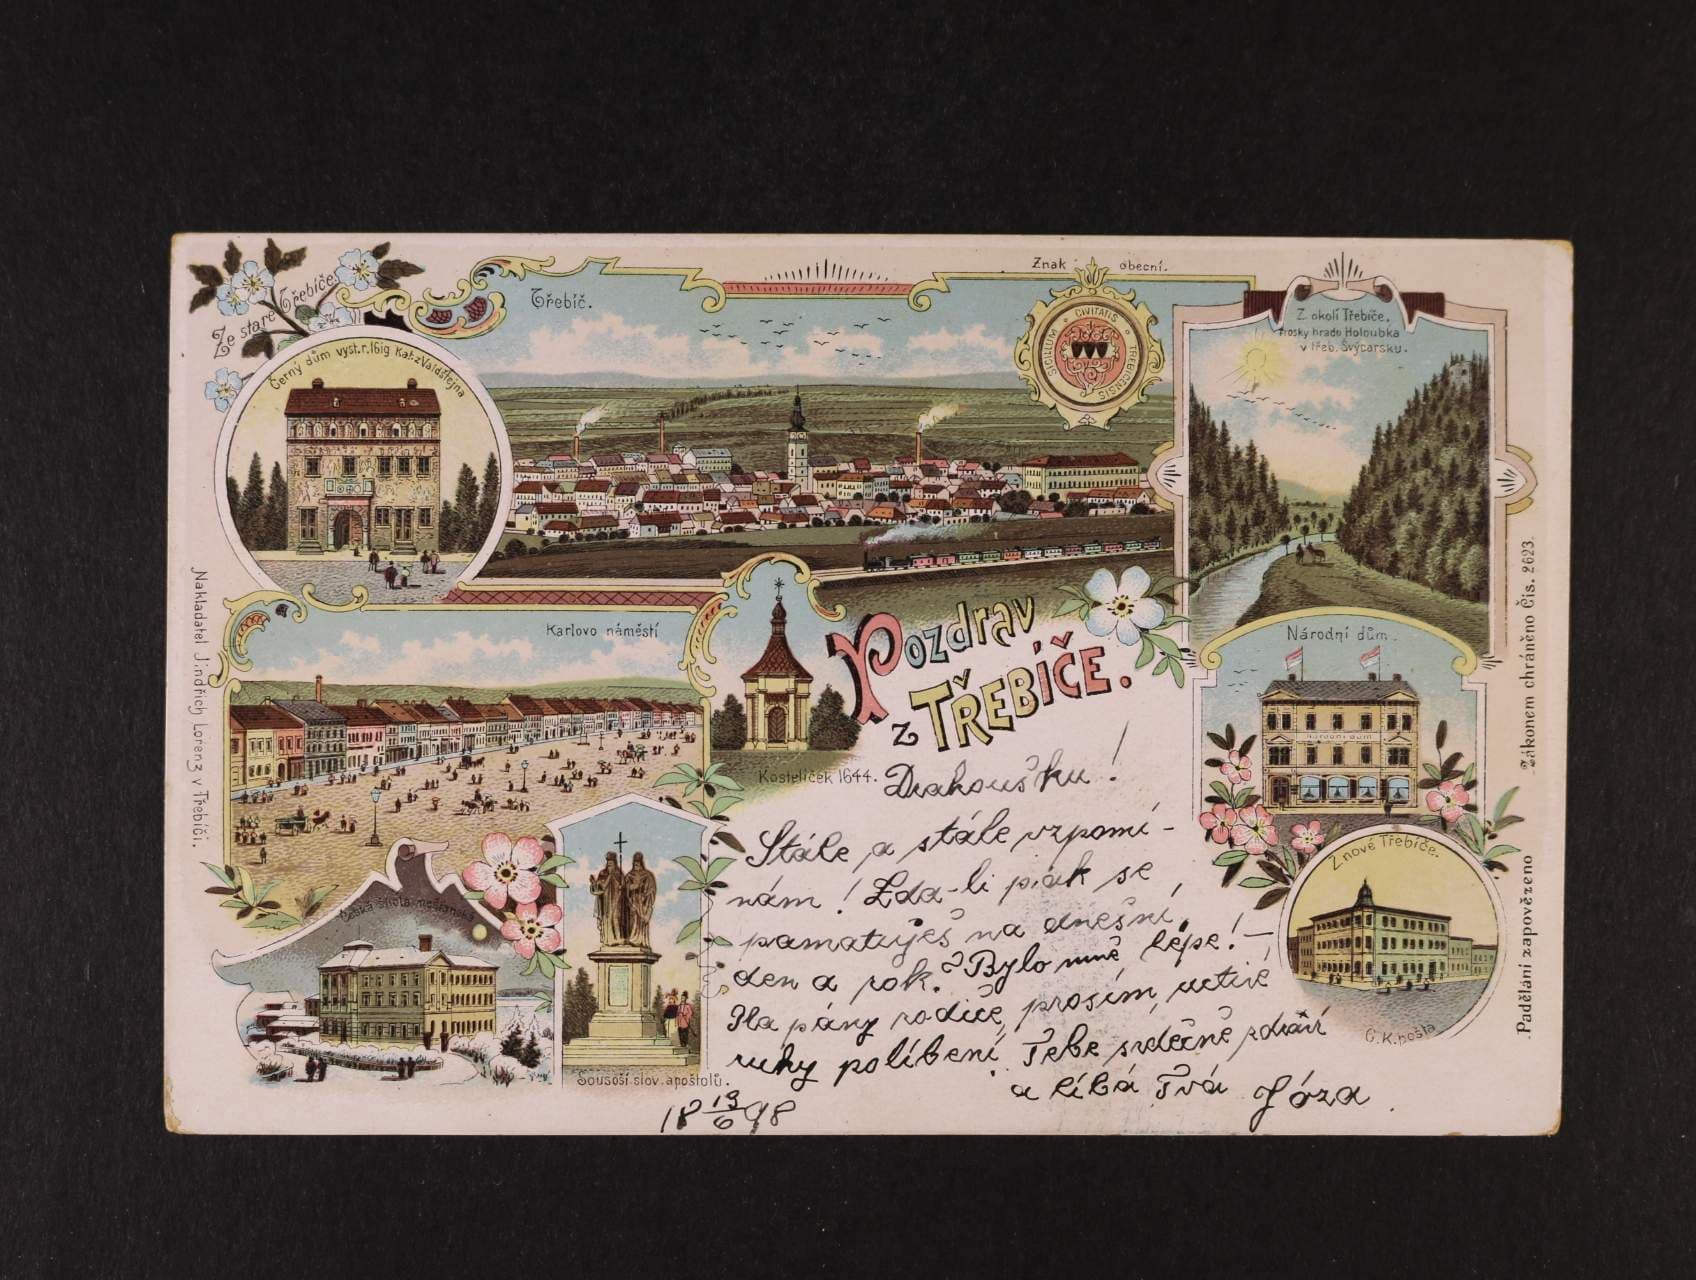 Ze staré Třebíče
Černý dům vyst. r. 16
Kat. z Valdštejna
Třebíč.
Znak obecní.
SIGILLUM CIVITATIS TREBICENSIS
Z okolí Třebíče.
Trosky hradu Holoubka
v třeb. Švýcarsku.
Karlovo náměstí
Kostelíček 1644.
Pozdrav
z TŘEBÍČE.
Národní dům.
NÁRODNÍ DŮM
Z nové Třebíče.
C. K. pošta
Česká škola měšťanská
Sousoší slov. apoštolů.
Nakladatel Jindřich Lorenz v Třebíči.
Padělání zapovězeno
Zákonem chráněno Čís. 2623.
Drahoušku!
Stále a stále vzpomí-
nám! Zda-li pak se
pamatuješ na dnešní
den a rok? Bylo mně lépe! –
Na pány rodiče, prosím, uctivé
ruky políbení. Tebe srdečně zdraví
a líbá Tvá Józa.
18 19/6 98